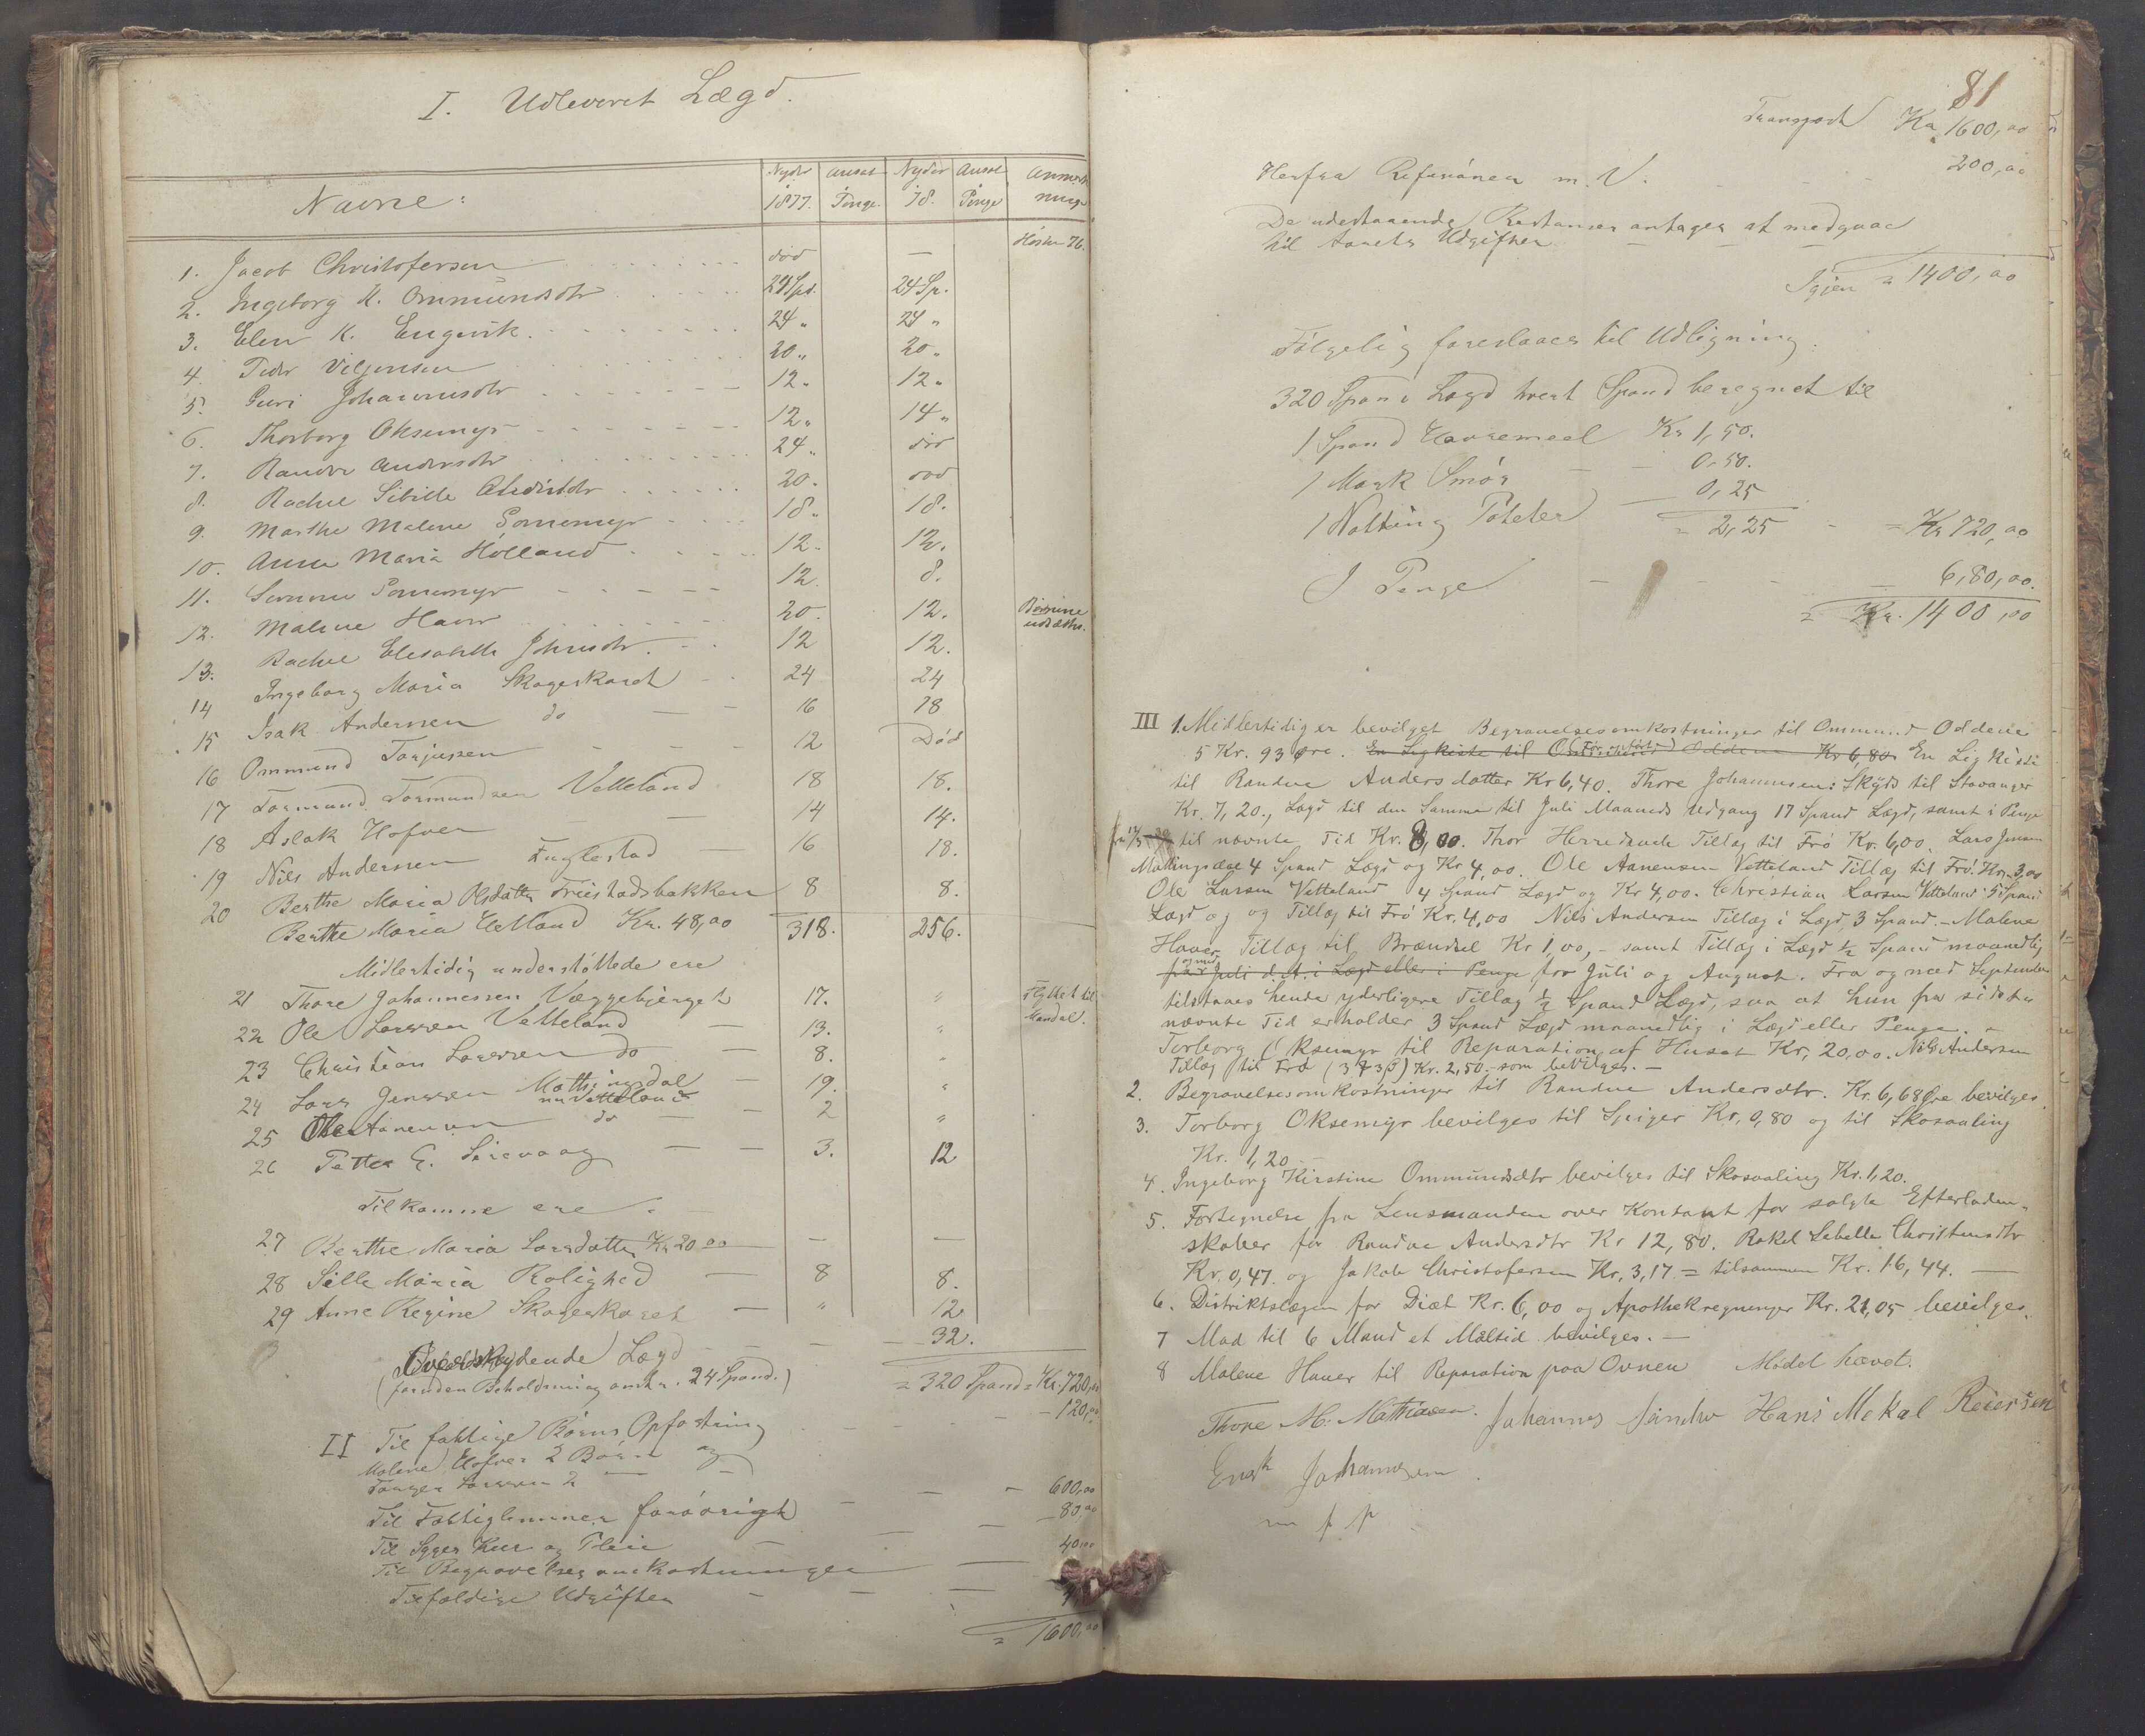 I. Udleveret Lægd.
Navne: Nyder 1877. Ansat Penge. Nyder 78. Ansat Penge Anmærkninge
1. Jacob Christofersen død — Høsten 76.
2. Ingeborg K. Ommundsdtr 24 Spd. 24 Sp.
3. Elen K. Engevik. 24 " 24 "
4. Peder Viljensen 20 " 20 "
5. Guri Johannesdtr 12 " 12 "
6. Thorborg Oksemyr 12 " 14 "
7. Randve Andersdtr 24 " død
8. Rachel Sibille 20 " død
9. Marthe Malene 18 " 18.
10. Anna Maria Hølland 12 " 12.
11. 12. 8.
12. Malene Haver 20. 12. Børnene udsættes.
13. Rachel Elisabeth Johnsdtr. 12 12.
14 Ingeborg Maria Skageskaret 24 24
15 Isak Andersen do 16 18
16 Ommund Torjussen 12 Død
17 Tormund Tormundsen Vetteland 18 18.
18 Aslak Hofver 14 14.
19 Nils Andersen Fuglestad 16 18.
20 Berthe Maria Olsdatter Friestadsbakken 8 8.
Berthe Maria Helland Kr. 48,00 318. 256.
Midlertidig understøttede ere
21 Thore Johannessen Væggebjerget 17. " Flyttet til Mandal.
22 Ole Larssen Vetteland — 13. "
23 Christian Larssen do — 8. "
24 Lars Jenssen Mattingsdal — 19. "
nu Vetteland
25 Ole Aanensen do — 2 "
26 Petter G. Sirevaag — 3. 12
Tilkomne ere
27 Berthe Maria Larsdatter Kr 20 00 — —
28 Sille Maria Rolighed — 8 8.
29 Anne Regine Skageskaret — " 12
Overskydende Lægd — 32.
(foruden Beholdning omtr. 24 Spand.) = 320 Spand = Kr. 720,00
II Til fattige Børns Opfostring — 120,00
Malene Hofver 2 Børn og
Larssen 2 —
Til Fattiglemmer forøvrigt — 600,00
Til Syges Kur og Pleie — 80,00
Til Begravelsesomkostninger — 40,00
Tilfældige Udgifter
= 1600,00
81
Transport Kr. 1600,00
Herfra Refusioner m. V. 200,00
De udestaaende Restanser antages at medgaae
til Aarets Udgifter
Igjen = 1400,00
Følgelig foreslaaes til Udligning.
320 Span i Lægd hvert Spand beregnet til
1 Spand Havremeel Kr 1,50.
1 Mark Smør — 0,50.
1 Notting Poteter — 0,25
= 2,25 = Kr 720,00
I Penge — 6,80,00.
= Kr. 1400,00
III 1. Midlertidig er bevilget Begravelsesomkostninger til Ommund Oddene
5 Kr. 93 Øre. En Ligkiste til Ommund Oddene Kr 6,80 En Ligkiste
til Randve Andersdatter Kr 6,40. Thore Johannesen: Skyds til Stavanger
Kr. 7,20., Lægd til den Samme til Juli Maaneds Udgang 17 Spand Lægd, samt i Penge
til nævnte Tid Kr. 8,00. Thor Herredsvele Tillæg til Frø Kr. 6,00. Lars Jensen
Mattingsdal 4 Spand Lægd og Kr 4,00. Ole Aanensen Vetteland Tillæg til Frø. Kr. 3,00
Ole Larsen Vetteland 4 Spand Lægd og Kr 4,00. Christian Larsen Vetteland 5 Spand
Lægd og og Tillæg til Frø Kr. 4,00 Nils Andersen Tillæg i Lægd 3 Spand. — Malene
Haver Tillæg til Brændsel Kr 1,00, — samt Tillæg i Lægd ½ Spand maanedlig
fra og med Juli d. A. i Lægd eller i Penge for Juli og August. Fra og med September
tilstaaes hende yderligere Tillæg ½ Spand Lægd, saa at hun fra sidste
nævnte Tid erholder 3 Spand Lægd maanedlig i Lægd eller Penge. —
Torborg Oksemyr til Reparation af Huset Kr. 20,00. Nils Andersen
Tillæg til Frø Kr. 2,50. som bevilges. —
2. Begravelsesomkostninger til Randve Andersdtr. Kr. 6,68 Øre bevilges.
3. Torborg Oksemyr bevilges til Spiger Kr. 0,80 og til Skosaaling
Kr. 1,20
4. Ingeborg Kirstine Ommundsdtr bevilges til Skosaaling Kr. 1,20.
5. Fortegnelse fra Lensmanden over Kontant for solgte Efterladen-
skaber for Randve Andersdtr Kr 12,80. Rakel Sebelle Christensdtr
Kr. 0,47. og Jakob Christofersen Kr. 3,17 = tilsammen Kr. 16,44. —
6. Distriktslægen for Diæt Kr. 6,00 og Apothekregninger Kr. 21,05 bevilges.
7 Mad til 6 Mand et Maltid bevilges. —
8 Malene Haver til Reparation paa Ovnen Mødet hævet.
Thore M. Mattiasen. Johannes Hans Mekal Reiersen
Enok Johannesen